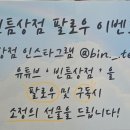 빈틈상점 팔로우 이벤
점 인스타그램 @bin._.te
유튜브 '빈틈상점' 을
팔로우 및 구독시
소정의 선물을 드립니다!